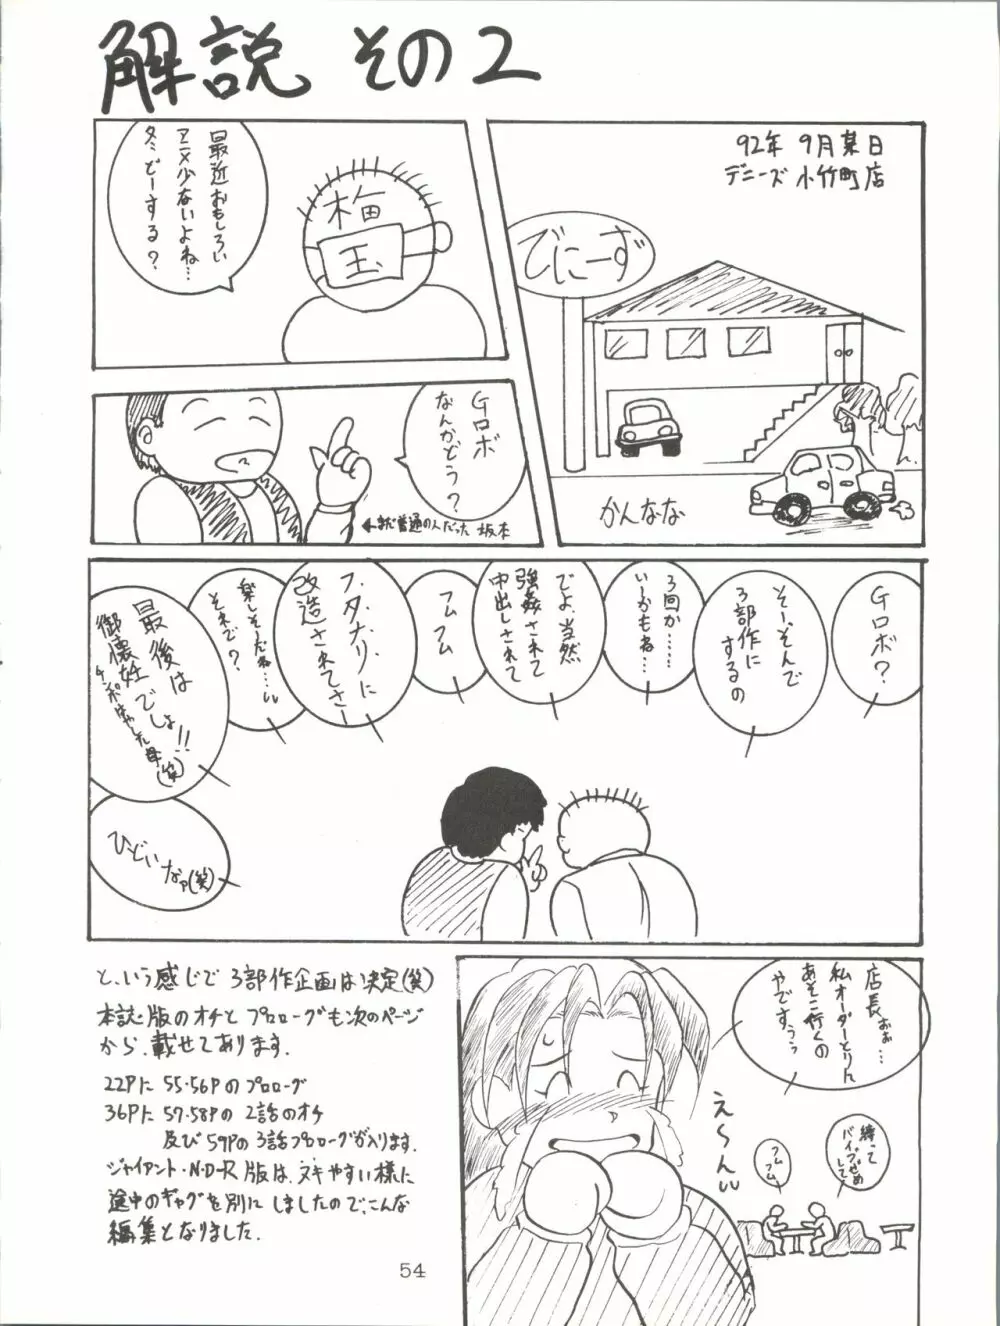 解説 その2
92年 9月某日
デニーズ 小竹町店
でにーず
かんなな
最近おもしろい
アニメ少ないよね…
冬どーする?
梅
玉
Gロボ
なんかどう?
←まだ普通の人だった 坂本
Gロボ?
そー、そんで
3部作に
するの
3回か……
いーかもね…
でよ当然
強姦されて
中出しされて
フムフム
フタナリに
改造されてさ
楽しそーだね…
それで?
最後は
御懐妊でしょ!!
ひどいなァ(笑)
と、いう感じで 3部作企画は決定(笑)
本誌版のオチと プロローグも次のページ
から、載せてあります.
22Pに 55・56Pのプロローグ
36Pに 57・58Pの 2話のオチ
及び 59Pの 3話プロローグが入ります.
ジャイアント・N・D-R 版は、ヌキやすい様に
途中のギャグを別に しましたので、こんな
編集となりました.
店長ぉぉ…
私オーダーとりに
あそこ行くの
やですぅぅ
え〜ん
フムフム
縛って
バイブぜめ
して
54